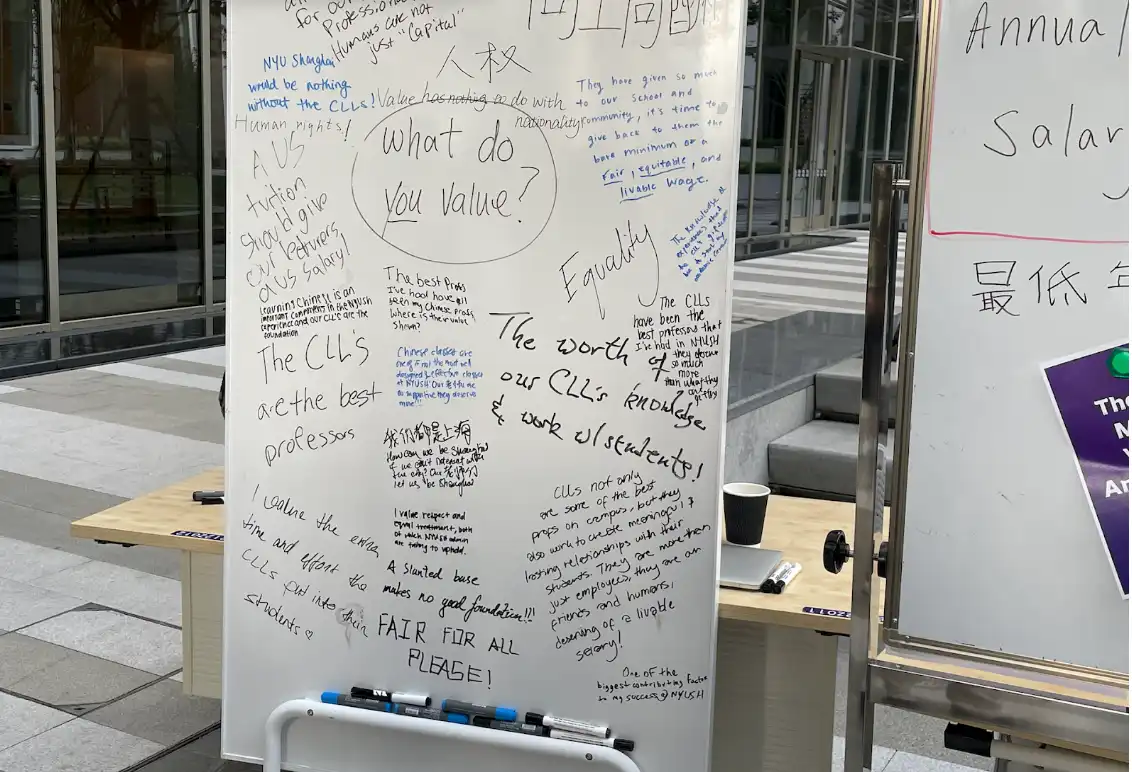 for our
Professional
Humans are not
just "Capital"
同工同酬
人权
NYU Shanghai
would be nothing
without the CLLs!
Human rights!
Value has nothing to do with
nationality
They have given so much
to our school and
community, it's time to
give back to them the
bare minimum of a
fair, equitable, and
livable wage.
What do
you value?
A US
tuition
should give
our lecturers
a US salary!
Equality
Learning Chinese is an
important component in the NYUSH
experience and our CLL's are the
foundation
The best profs
I've had have all
been my Chinese profs
where is their value
shown?
The CLLs
have been the
best professors that
I've had in NYUSH
they deserve
so much
more
than what they
The CLL's
are the best
professors
Chinese classes are
classes
at NYUSH
they deserve
more!!!
The worth of
our CLL's knowledge
& work w/students!
我们都是上海
How can we be Shanghai
if we
the city?
let us, be Shanghai
I value respect and
equal treatment, both
of which NYUSH admin
are failing to uphold.
I value the extra
time and effort the
CLLs put into their
students ♡
A slanted base
makes no good foundation!!!
FAIR FOR ALL
PLEASE!
CLLs not only
are some of the best
profs on campus, but they
also work to create meaningful &
lasting relationships with their
students. They are more than
just employees, they are our
friends and humans,
deserving of a livable
salary!
One of the
biggest contributing factors
to my success @ NYUSH
Annual
Salar
最低年
The
M
Y
An